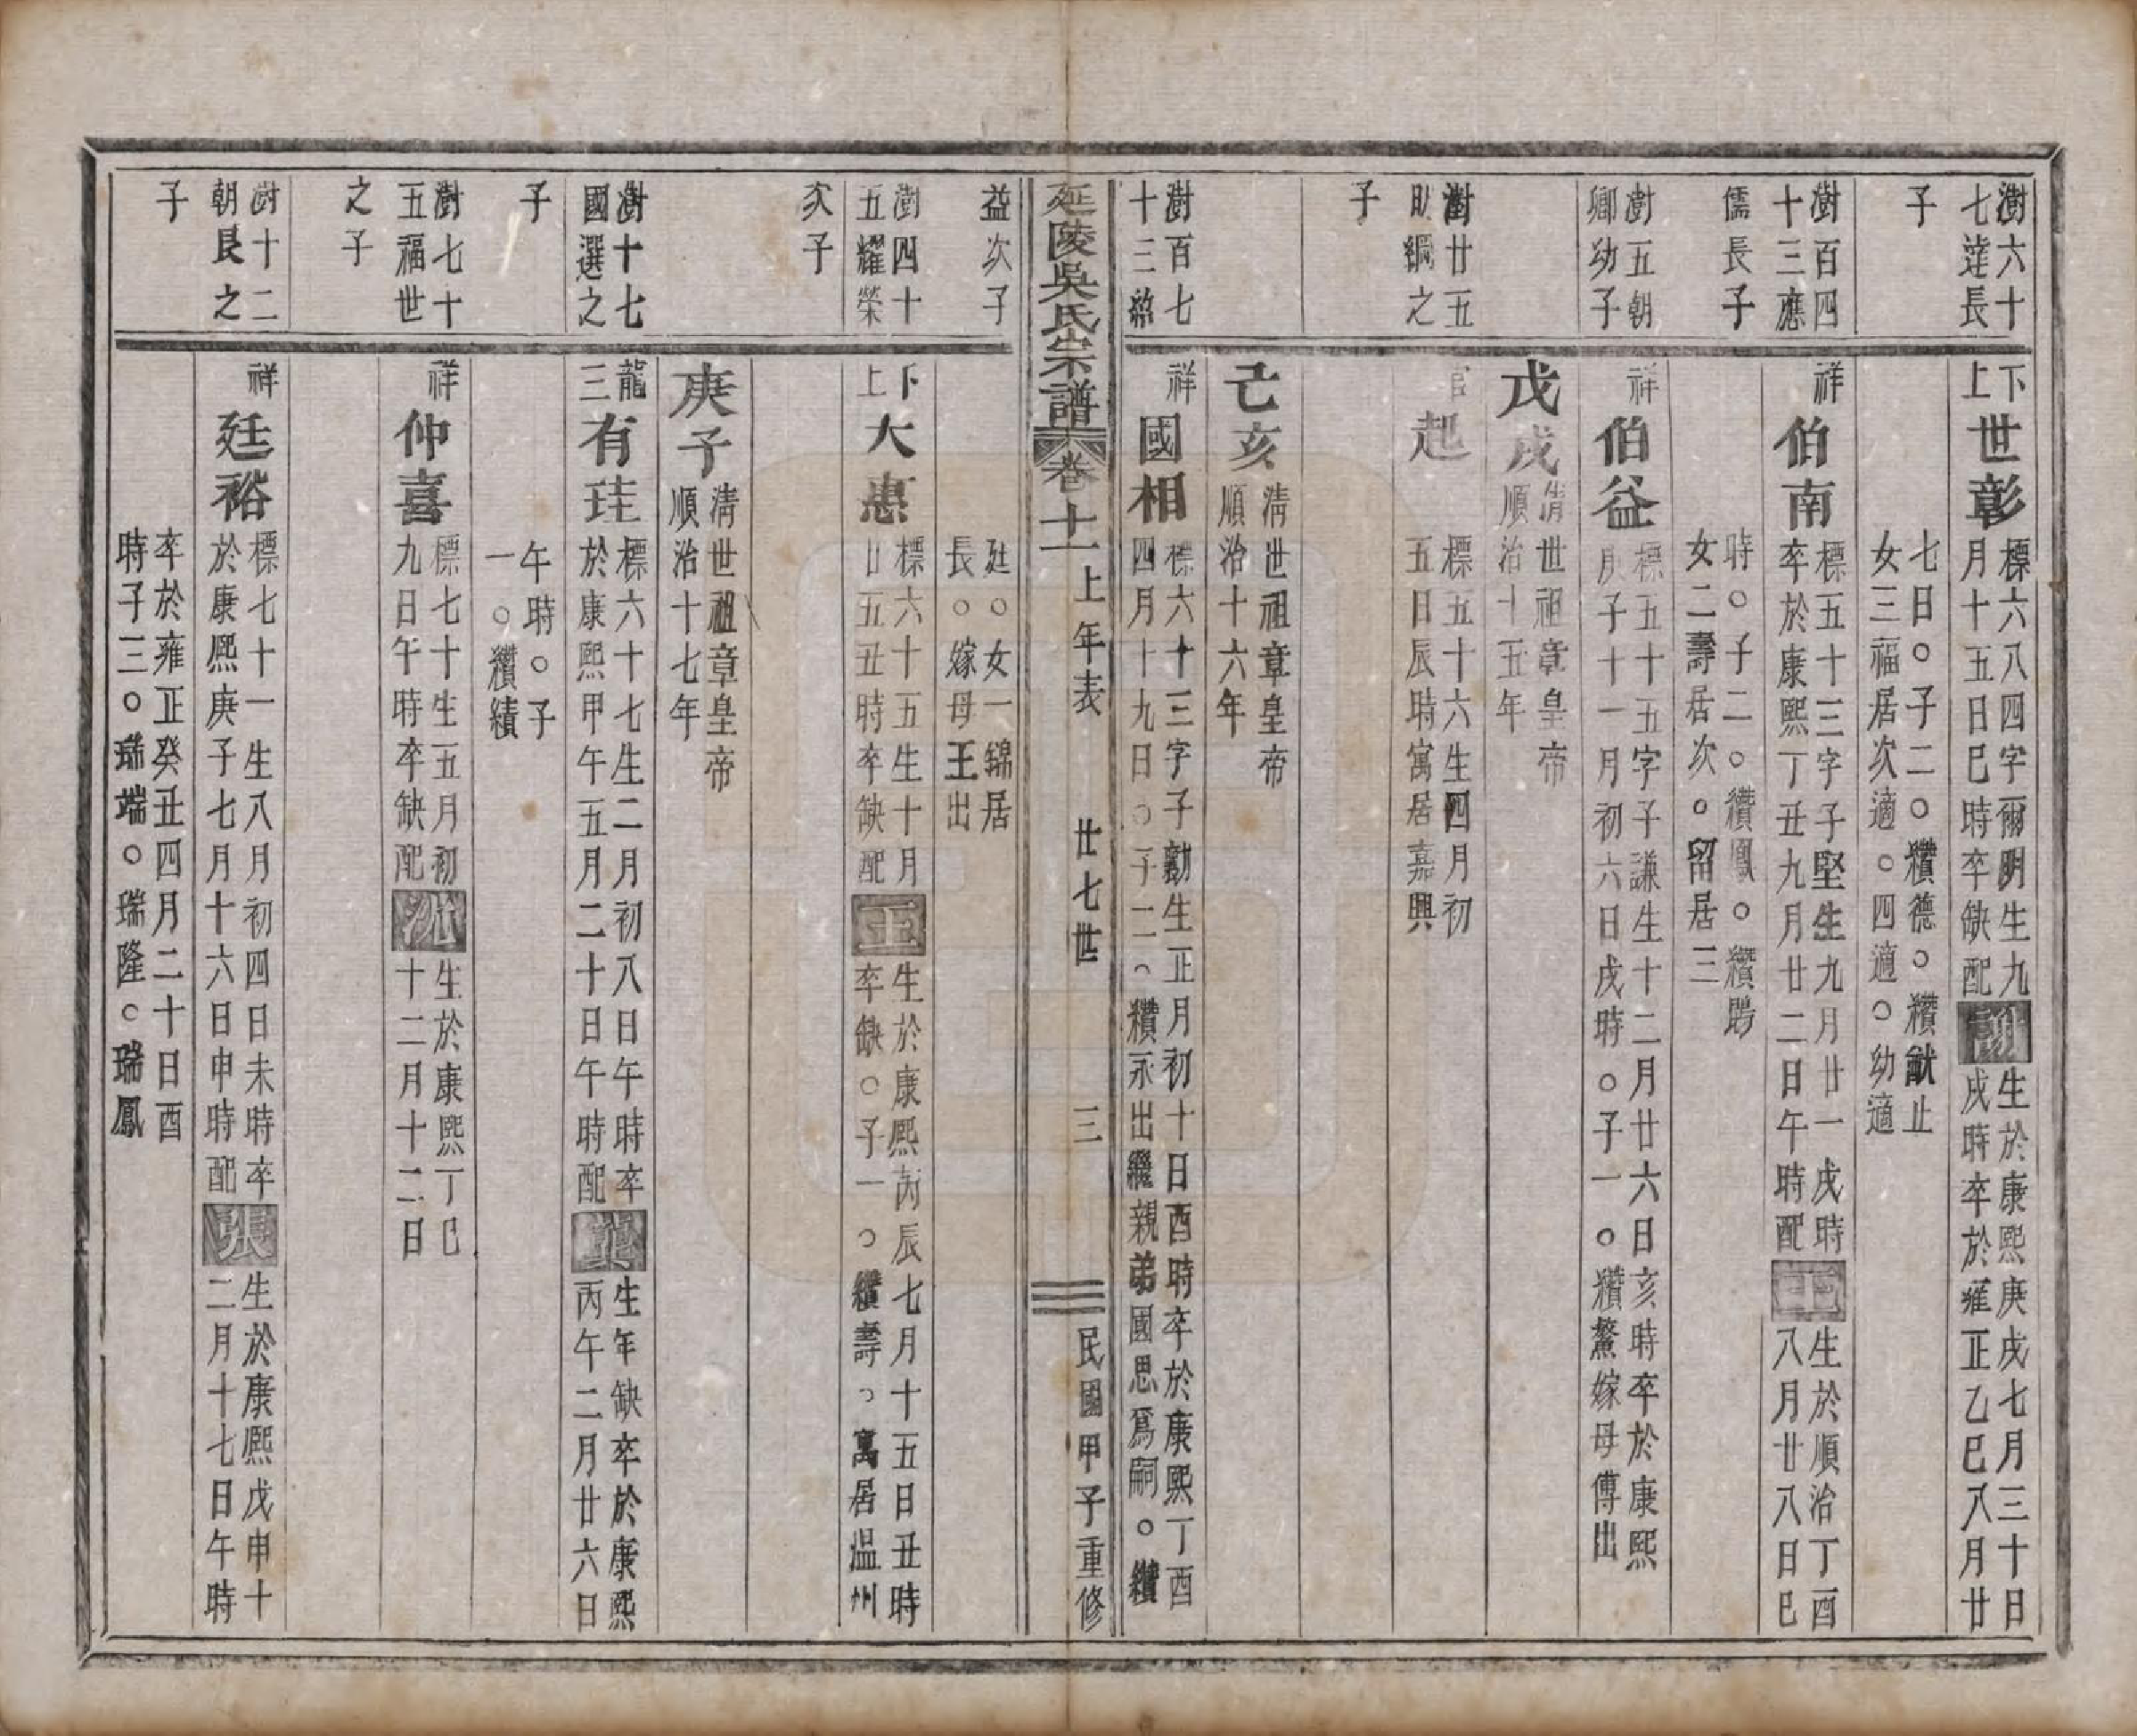 澍六十
七達長
子
下
上
世彰
標六八四字爾明生九
月十五日巳時卒缺配
謝
生於康熙庚戌七月三十日
戌時卒於雍正乙巳八月廿
七日○子二○穳德○穳猷止
女三福居次適○四適○幼適
澍百四
十三應
儒長子
祥
伯南
標五十三字子堅生九月廿一戌時
卒於康熙丁丑九月廿二日午時配
王
生於順治丁酉
八月廿八日巳
時○子二○穳鳳○穳聘
女二壽居次○留居三
澍五朝
卿幼子
祥
伯益
標五十五字子謙生十二月廿六日亥時卒於康熙
庚子十一月初六日戌時○子一○穳鰲嫁母傅出
戊戌
清世祖章皇帝
順治十五年
澍廿五
助綱之
子
官
起
標五十六生四月初
五日辰時寓居嘉興
己亥
清世祖章皇帝
順治十六年
澍百七
十三紹
益次子
祥
國相
標六十三字子勷生正月初十日酉時卒於康熙丁酉
四月十九日○子二○穳永出繼親弟國思爲嗣○穳
延陵吳氏宗譜
卷十一上年表
廿七世
三
民國甲子重修
廷○女一錦居
長○嫁母王出
澍四十
五耀榮
次子
下
上
大惠
標六十五生十月
廿五丑時卒缺配
王
生於康熙丙辰七月十五日丑時
卒缺○子一○穳壽○寓居温州
庚子
清世祖章皇帝
順治十七年
澍十七
國選之
子
龍
三
有珪
標六十七生二月初八日午時卒
於康熙甲午五月二十日午時配
龔
生年缺卒於康熙
丙午二月廿六日
午時○子
一○穳績
澍七十
五福世
之子
祥
仲喜
標七十生五月初
九日午時卒缺配
沈
生於康熙丁巳
十二月十二日
澍十二
朝良之
子
祥
廷裕
標七十一生八月初四日未時卒
於康熙庚子七月十六日申時配
張
生於康熙戊申十
二月十七日午時
卒於雍正癸丑四月二十日酉
時子三○瑞端○瑞隆○瑞鳳